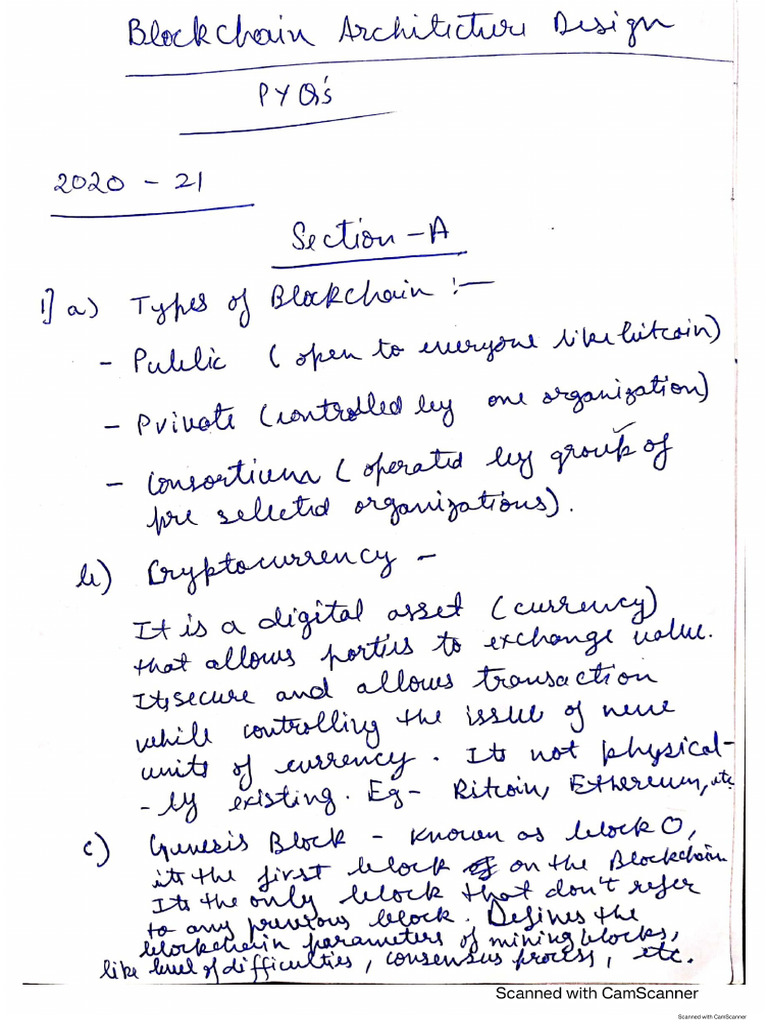 Blockchain Architecture Design
PYQ's
2020 - 21
Section - A
1] a) Types of Blockchain :-
- Public (open to everyone like bitcoin)
- Private (controlled by one organization)
- Consortium (operated by group of
pre selected organizations).
b) Cryptocurrency -
It is a digital asset (currency)
that allows parties to exchange value.
Its secure and allows transaction
while controlling the issue of new
units of currency. Its not physical-
-ly existing. Eg - Bitcoin, Ethereum, etc
c) Genesis Block - Known as block 0,
its the first block on the Blockchain
Its the only block that don't refer
to any previous block. Defines the
blockchain parameters of mining blocks,
like level of difficulties, consensus process, etc.
Scanned with CamScanner
Scanned with CamScanner